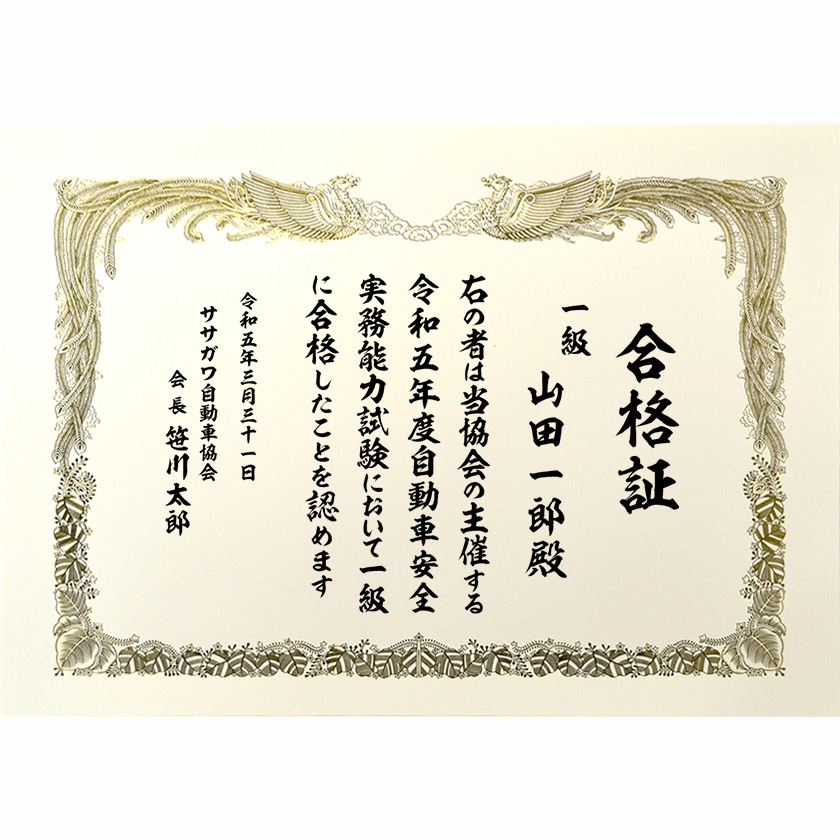 合格証
一級
山田一郎殿
右の者は当協会の主催する
令和五年度自動車安全
実務能力試験において一級
に合格したことを認めます
令和五年三月三十一日
ササガワ自動車協会
会長 笹川太郎